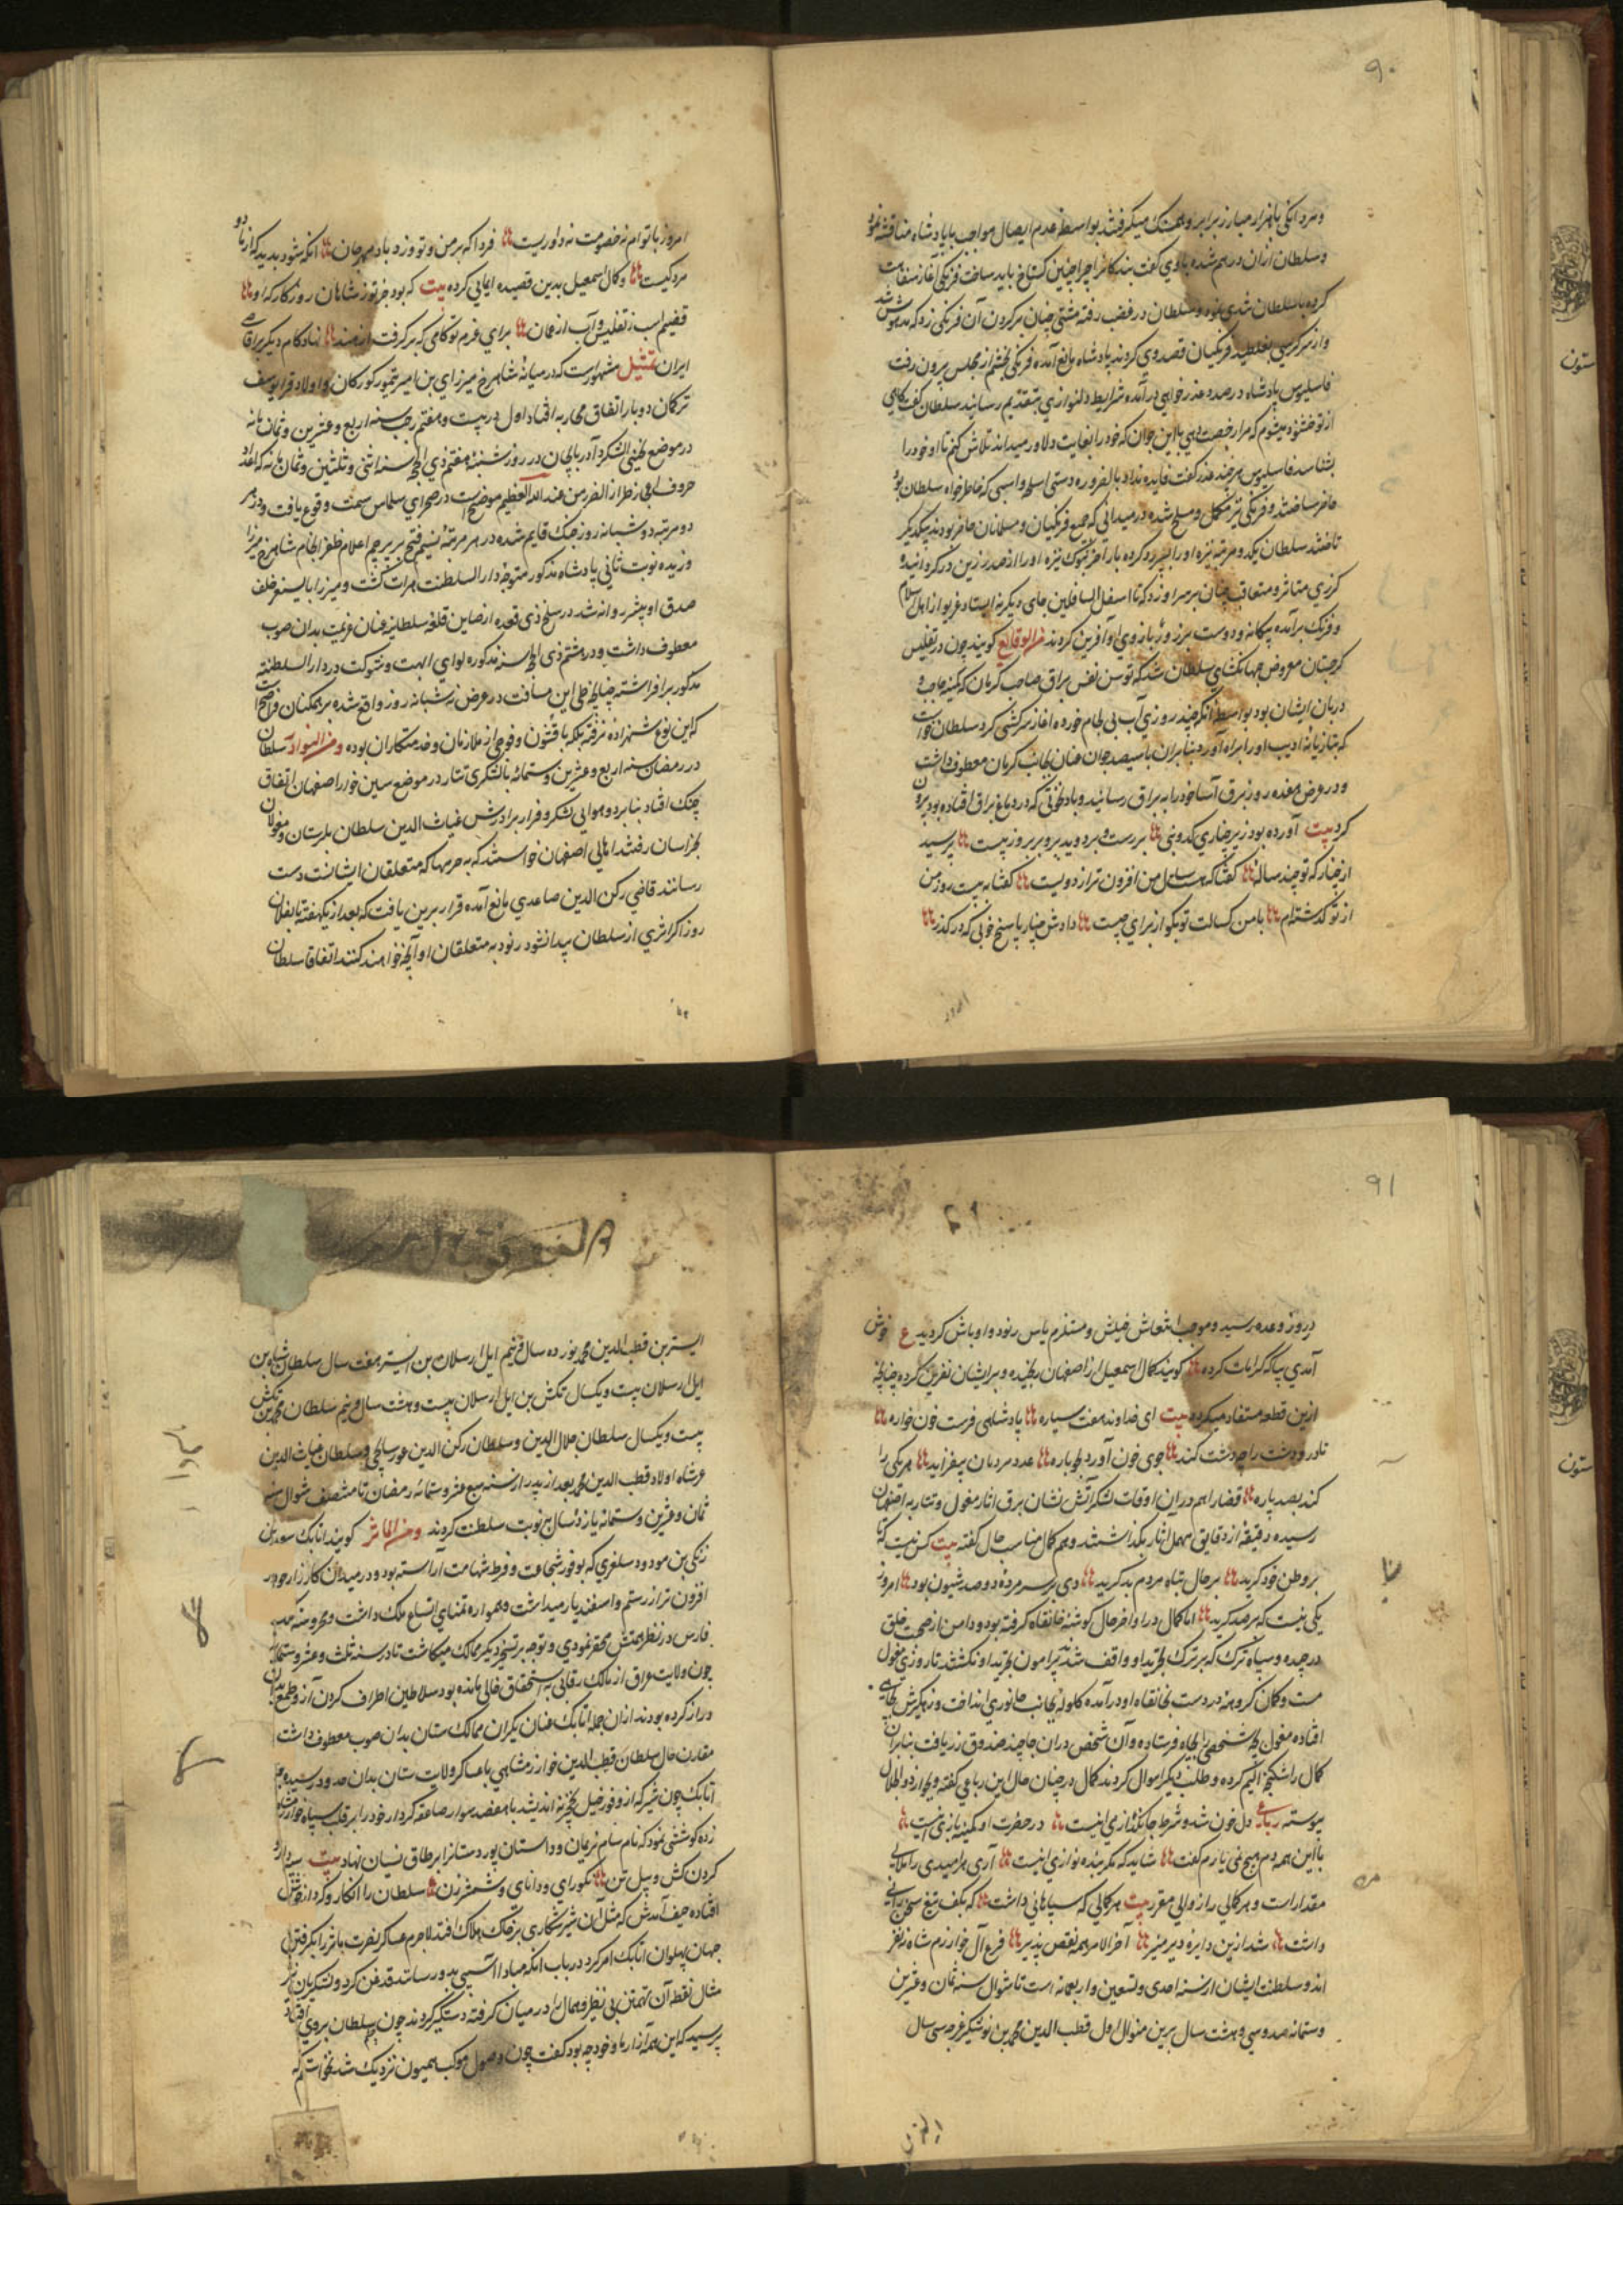 ۹۰
و مردانگی با هزار مبارز برابر و همسنگ میگرفتند بواسطه عدم ایصال مواجب با پادشاه مناقشه نمود
و سلطان ازان درهم شده با وی گفت بندکانرا چرا چنین کستاخ باید ساخت فرنکی آغاز سفاهت
کرده با سلطان تندی نمود و سلطان در غضب رفته مشتی چنان بر کردن آن فرنکی زد که مدهوش شد
و از سر کرسی بغلطید فرنکیان قصد وی کردند پادشاه مانع آمده فرنکی بخشم از مجلس بیرون رفت
فاسلیوس پادشاه در صدد عذرخواهی درآمده شرایط دلنوازی بتقدیم رسانید سلطان گفت گاهی
از تو خشنود میشوم که مرا رخصت دهی با این جوان که خود را بغایت دلاور میداند تلاش کنم تا او خود را
بشناسد فاسلیوس هرچند عذر گفت فایده نداد بالضروره دستی اسلحه و اسبی که خاطرخواه سلطان بود
حاضر ساختند و فرنکی نیز مکمل و مسلح شده در میدانی که جمیع فرنکیان و مسلمانان حاضر بودند بیکدیگر
تاختند سلطان یکدو مرتبه نیزه او را رد کرده بار آخر بنوک نیزه او را از صدر زین در کردانید و
کرزی متاثر و متعاقب چنان بر سر او زد که تا اسفل السافلین جای دیگر نه ایستاد غریو از اهل اسلام
و فرنک برآمده بیکانه و دوست بر زور بازوی او آفرین کردند من الوقایع کویند چون در تفلیس
کرجستان معروض جهانکشای سلطان شد که توسن نفس براق حاجب کرمان که کمینه حاجب و
دربان ایشان بود بواسطه آنکه چند روزی آب بی لجام خورده آغاز سرکشی کرد سلطان خواست
که بتازیانه تادیب او را براه آورد بنابران با سیصد جوان عنان بجانب کرمان معطوف داشت
و در عرض هفده روز برق آسا خود را به براق رسانید و باد نخوتی که در دماغ براق افتاده بود بیرون
کرد بیت آورده بود زیر چناری کدوبنی بر رست و بر دوید برو بر بروز بیست پرسید
از چنار که تو چند ساله گفتا که هست سال من افزون تر از دویست گفتا به بیست روز من
از تو گذشته‌ام با من کسالت تو بکو از برای چیست دادش چنار پاسخ خوبی که در کذر
امروز
امروز با تو ام نه خصومت نه داوریست فردا که بر من و تو وزد باد مهرجان آنکه شود بدید که از ما دو
مرد کیست و کمال اسمعیل بدین قصیده ایمائی کرده بیت که بود جز تو ز شاهان روزکار که او
قضیم اسب ز تفلیس و آب از عمان برای عزم تو کامی که بر کرفت از هند نهاد کام دیکر بر اقاصی
ایران تمثیل مشهورست که در میانه شاهرخ میرزای بن امیر تیمور کورکان و اولاد قرا یوسف
ترکمان دو بار اتفاق محاربه افتاد اول در بیست و هفتم رجب سنه اربع و عشرین و ثمان مانه
در موضع آذربایجان در روز شنبه هفتم ذی الحجه سنه اثنی و ثلثین و ثمان مانه که اعداد
حروف من عند الله العظیم موضح است در صحرای سلماس سمت وقوع یافت و در هر
دو مرتبه دو شبانه روز جنک قایم شده در هر مرتبه نسیم فتح بر پرچم اعلام ظفر انجام شاهرخ میرزا
وزیده نوبت ثانی پادشاه مذکور متوجه دار السلطنت هرات کشت و میرزا بایسنغر خلف
صدق او پیشتر روانه شد در سلخ ذی قعده از صاین قلعه سلطانیه عنان عزیمت بدان صوب
معطوف داشت و در هشتم ذی الحجه سنه مذکوره لوای ابهت و شوکت در دار السلطنه
مذکور برافراشته چنانچه طی این مسافت در عرض نه شبانه روز واقع شده بر همکنان واضح است
که این نوع شهزاده نرفته بلکه با قشون و فوجی از ملازمان و خدمتکاران بوده و من النوادر سلطان
در رمضان سنه اربع و عشرین و ستمائه با لشکری تتار در موضع سین خوار اصفهان اتفاق
جنک افتاد بنابر دو هوایی لشکر و فرار برادرش غیاث الدین سلطان بلرستان و مغولان
بخراسان رفتند اهالی اصفهان خواستند که به حرمها که متعلقان ایشانت دست
رسانند قاضی رکن الدین صاعدی مانع آمده قرار برین یافت که بعد از یکهفته تا بفلان
روز اکر اثری از سلطان پیدا نشود رنود به متعلقان او آنچه خواهند کنند اتفاقا سلطان
۹۱
در روز وعده رسید و موجب انتعاش خیلش و مستلزم یاس رنود و اوباش کردید ع خوش
آمدی بیا که کرامات کرده کویند کمال اسمعیل از اصفهان رنجیده و بر ایشان نفرین کرده چنانچه
ازین قطعه مستفاد میکردد بیت ای خداوند هفت سیاره پادشاهی فرست خون خواره
تا در و دشت را چو دشت کند جوی خون آورد بجوباره عدد مردمان بیفزاید هر یکی را
کند بصد پاره قضا را هم در ان اوقات لشکر آتش نشان برق آثار مغول و تتار به اصفهان
رسیده دقیقه از دقایق مهمل نگذاشتند و هم کمال مناسب حال گفته بیت کس نیست که تا
بر وطن خود کرید بر حال تباه مردم بد کرید دی بر سر مرده دو صد شیون بود امروز
یکی نیست که بر صد کرید اما کمال در اواخر حال کوشه خانقاه کرفته بود و دامن از صحبت خلق
درچیده و سپاه ترک که بر ترک و تجرید او واقف شدند پیرامون تجرید او نکشتند تا روزی مغول
مست و کمان کروهه در دست بخانقاه او درآمده کلوله بجانب جانوری انداخت و زهکیرش بچاهی
افتاده مغول شخصی را بچاه فرستاده و آن شخص دران جا چند صندوق زر یافت بنابران
کمال را شکنجه الیم کرده و طلب دیکر اموال کردند کمال در چنان حال این رباعی گفته و بجوار ذو الجلال
پیوسته رباعی دل خون شد و شرط جانکدازی اینست در حضرت او کمینه بازی اینست
با این همه دم هیچ نمی یارم گفت شاید که مکر بنده نوازی اینست آری هر مبدی را نهایتی
مقدارست و هر کمالی را زوالی مقرر بیت هر کمالی که سپاهانی داشت که بکف تیغ سخنرانی
داشت شد ازین دایره دیر منیر آخر الامر همه نقص پذیر فرع آل خوارزم شاه نه نفر
اند و سلطنت ایشان از سنه احدی و تسعین و اربعمائه است تا شوال سنه ثمان و عشرین
و ستمائه صد و سی و هشت سال برین منوال اول قطب الدین محمد بن نوشتکین غرجه سی سال
اتسز بن قطب الدین محمد نوزده سال و نیم ایل ارسلان بن اتسز هفت سال سلطان شاه بن
ایل ارسلان بیست و یکسال تکش بن ایل ارسلان بیست و هشت سال و نیم سلطان محمد بن تکش
بیست و یکسال سلطان جلال الدین و سلطان رکن الدین غورسانچی و سلطان غیاث الدین
عرشاه اولاد قطب الدین محمد بعد از پدر از سنه سبع عشر و ستمائه رمضان تا منتصف شوال سنه
ثمان و عشرین و ستمائه یازده سال بنوبت سلطنت کردند و من المآثر کویند اتابک سعد بن
زنکی بن مودود سلغری که بوفور شجاعت و فرط شهامت آراسته بود و در میدان کارزار خود را
افزون تر از رستم و اسفندیار میداشت و همواره تمنای اتساع ملک داشت و محروسه مملکت
فارس در نظر همتش محقر نمودی و توجه بر تسخیر دیکر ممالک میکاشت تا در سنه ثلث و عشر و ستمائه
چون ولایت عراق از مالک رقابی به استحقاق خالی مانده بود سلاطین اطراف کردن آز و طمع بدان
دراز کرده بودند از ان جمله اتابک عنان یکران ممالک ستان بدان صوب معطوف داشت
مقارن حال سلطان قطب الدین خوارزمشاهی با عساکر ولایت ستان بدان حدود رسیده
اتابک چون شیر که از وفور خیل نخجیر نه اندیشد با هفصد سوار صاعقه کردار خود را بر قلب سپاه خوارزمشاه
زده کوششی نمود که نام سام نریمان و داستان پور دستان را بر طاق نسیان نهاد بیت
کردن کش و پیل تن نکورای و دانای و شمشیر زن سلطان را انکار و کردار خوش
افتاده حیف آمدش که مثل آن شیر شکاری بر خاک هلاک افتد لاجرم عساکر نصرت مآثر را بکرفتن
جهان پهلوان اتابک امر کرد در باب آنکه مبادا آسیبی بدو رسانند قدغن کرد و لشکریان
مثال نقطه آن تهمتن بی نظیر و همال را در میان کرفته دستکیر کردند چون چشم سلطان بر وی افتاد
پرسید که این همه آزار با خود چه بود کفت چون وصول موکب همیون نزدیک شد نخواستم که
ستون
ستون